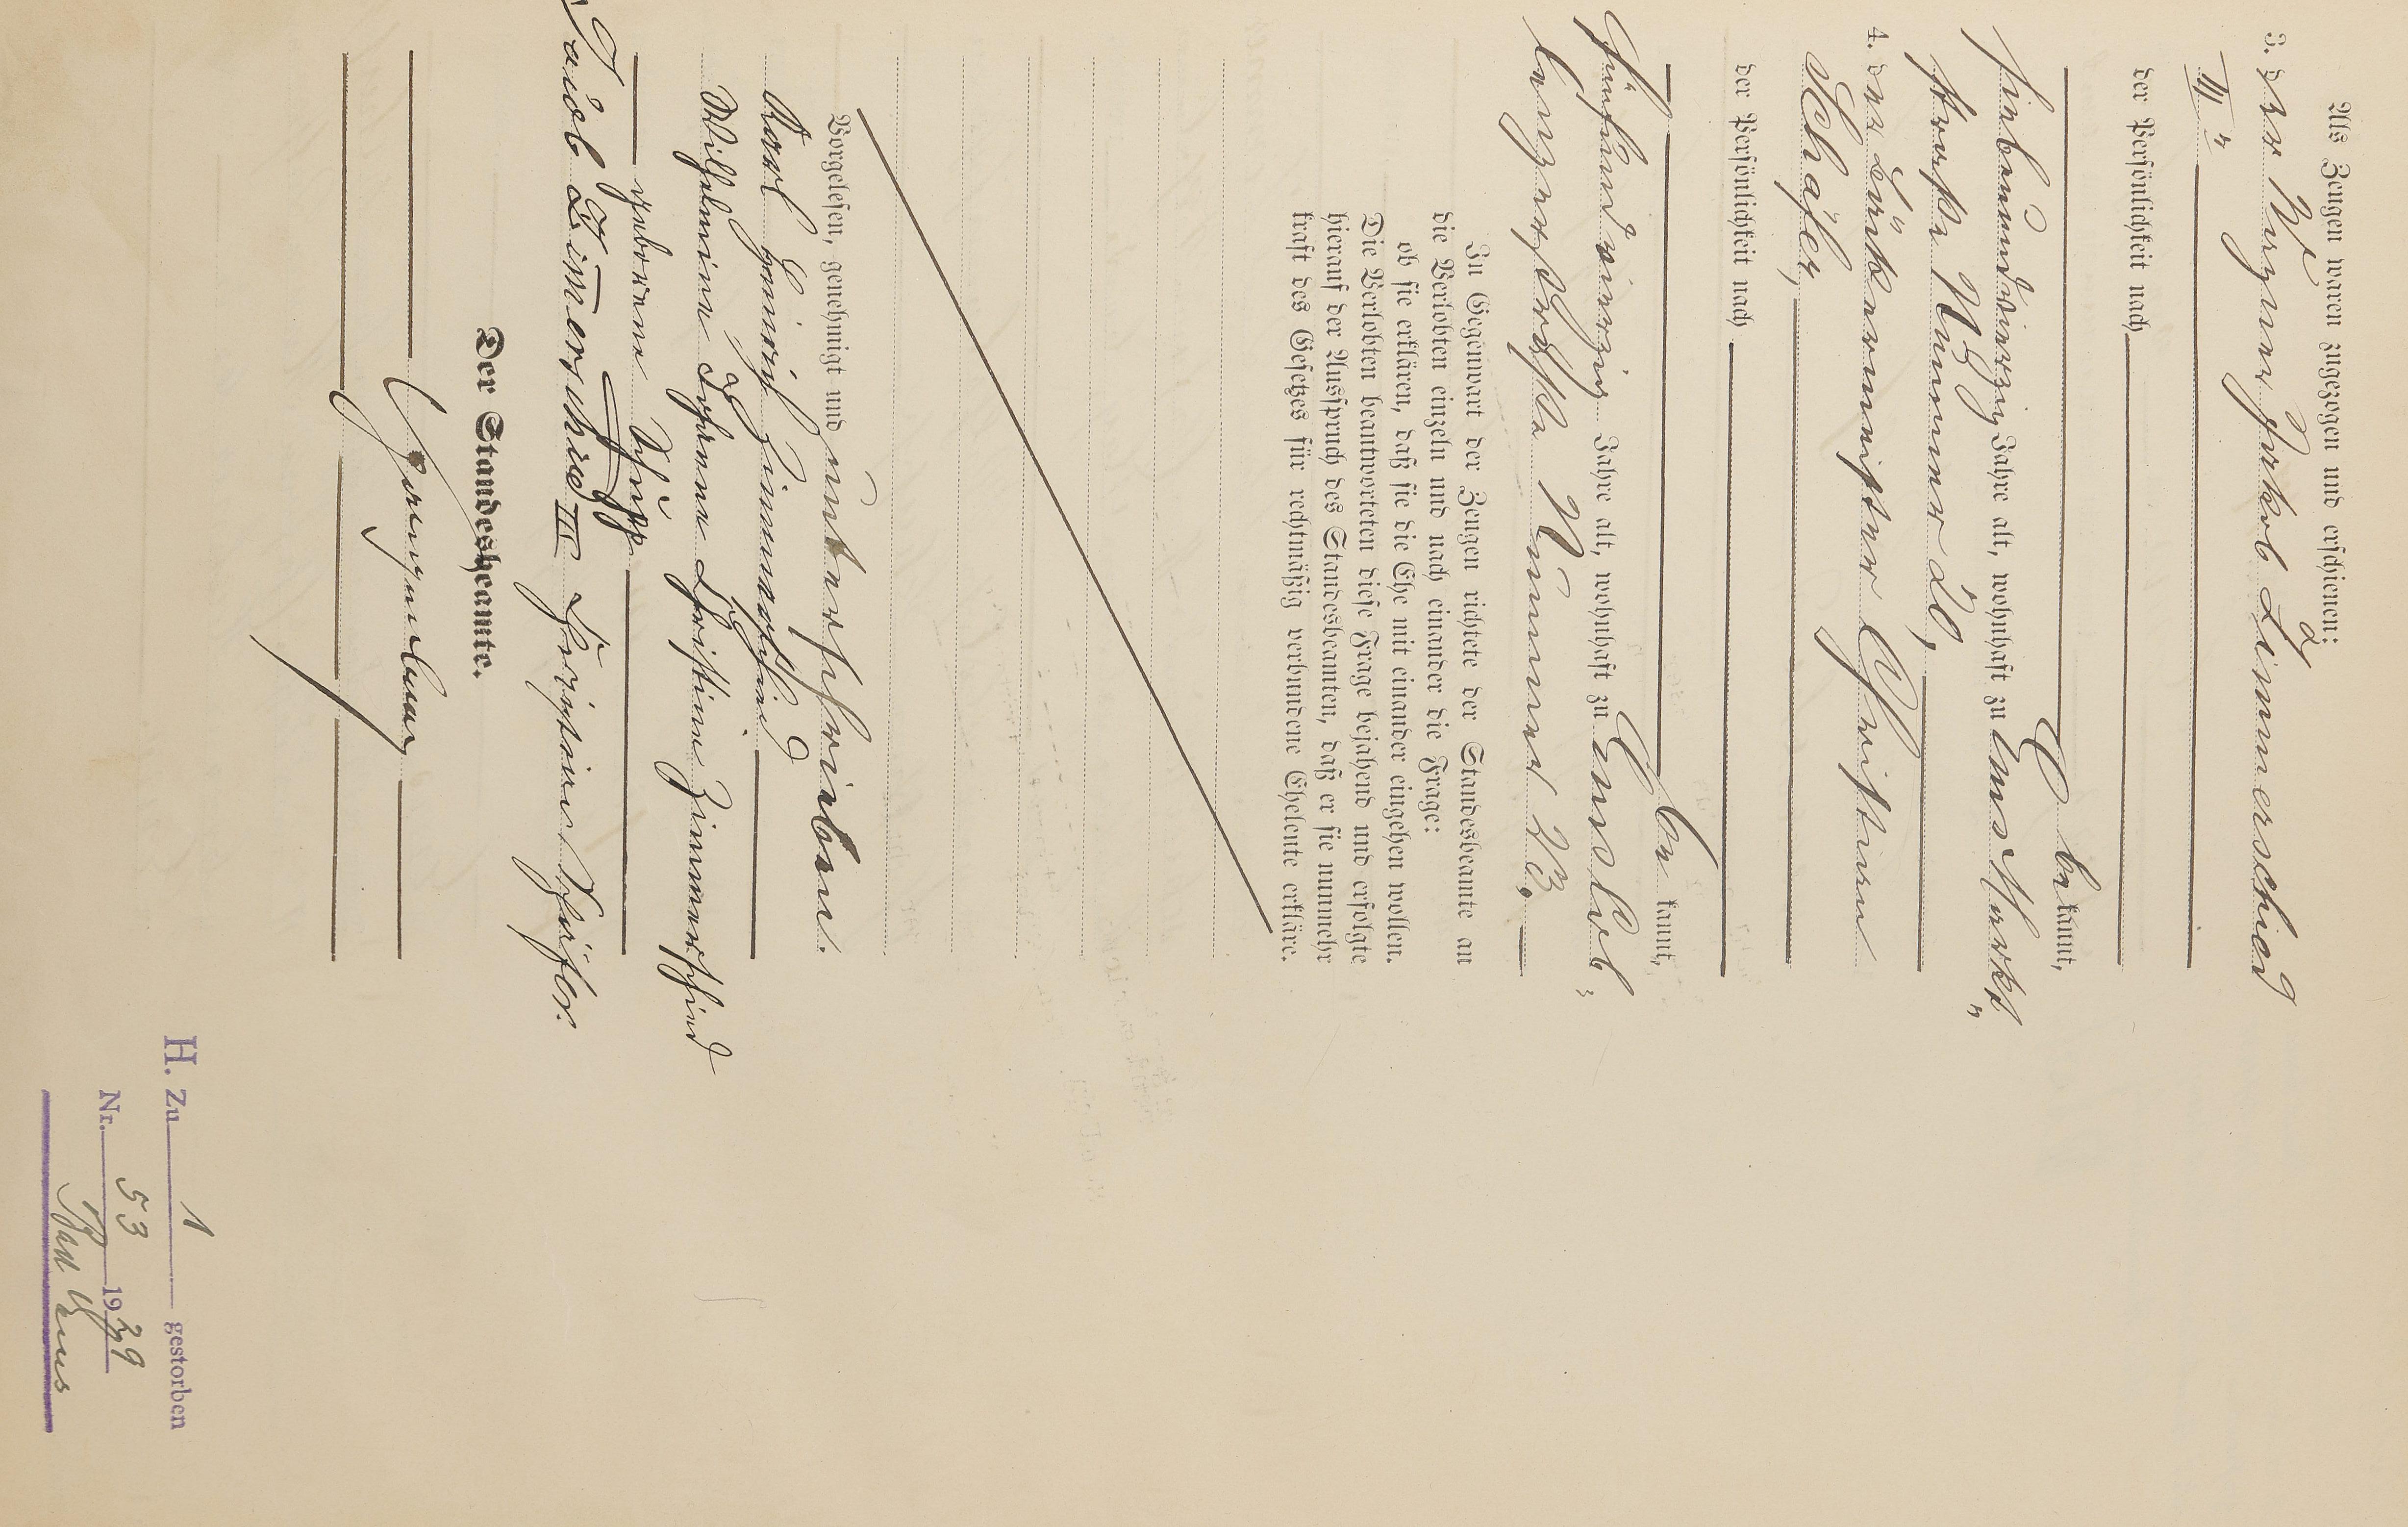 Als Zeugen waren zugezogen und erschienen:
3. der Wagner Jakob Zimmerschied
III
der Persönlichkeit nach
be kannt,
siebenundvierzig Jahre alt, wohnhaft zu Ems Markt„
straße Nummer 26,
4. der Tünchermeister Christian
Schäfer,
der Persönlichkeit nach
be kannt,
fünfundvierzig Jahre alt, wohnhaft zu Ems Cob„
lenzerstraße Nummer 23.
In Gegenwart der Zeugen richtete der Standesbeamte an
die Verlobten einzeln und nach einander die Frage:
ob sie erklären, daß sie die Ehe mit einander eingehen wollen.
Die Verlobten beantworteten diese Frage bejahend und erfolgte
hierauf der Ausspruch des Standesbeamten, daß er sie nunmehr
kraft des Gesetzes für rechtmäßig verbundene Eheleute erkläre.
Vorgelesen, genehmigt und unterschrieben.
Karl Heinrich Zimmerschied
Wilhelmine Johanna Christine Zimmerschied
geborene
Jacob Zimerschied III Christian Schäfer.
Der Standesbeamte.
H. Zu 1 gestorben
Nr. 53 1939
Bad Ems